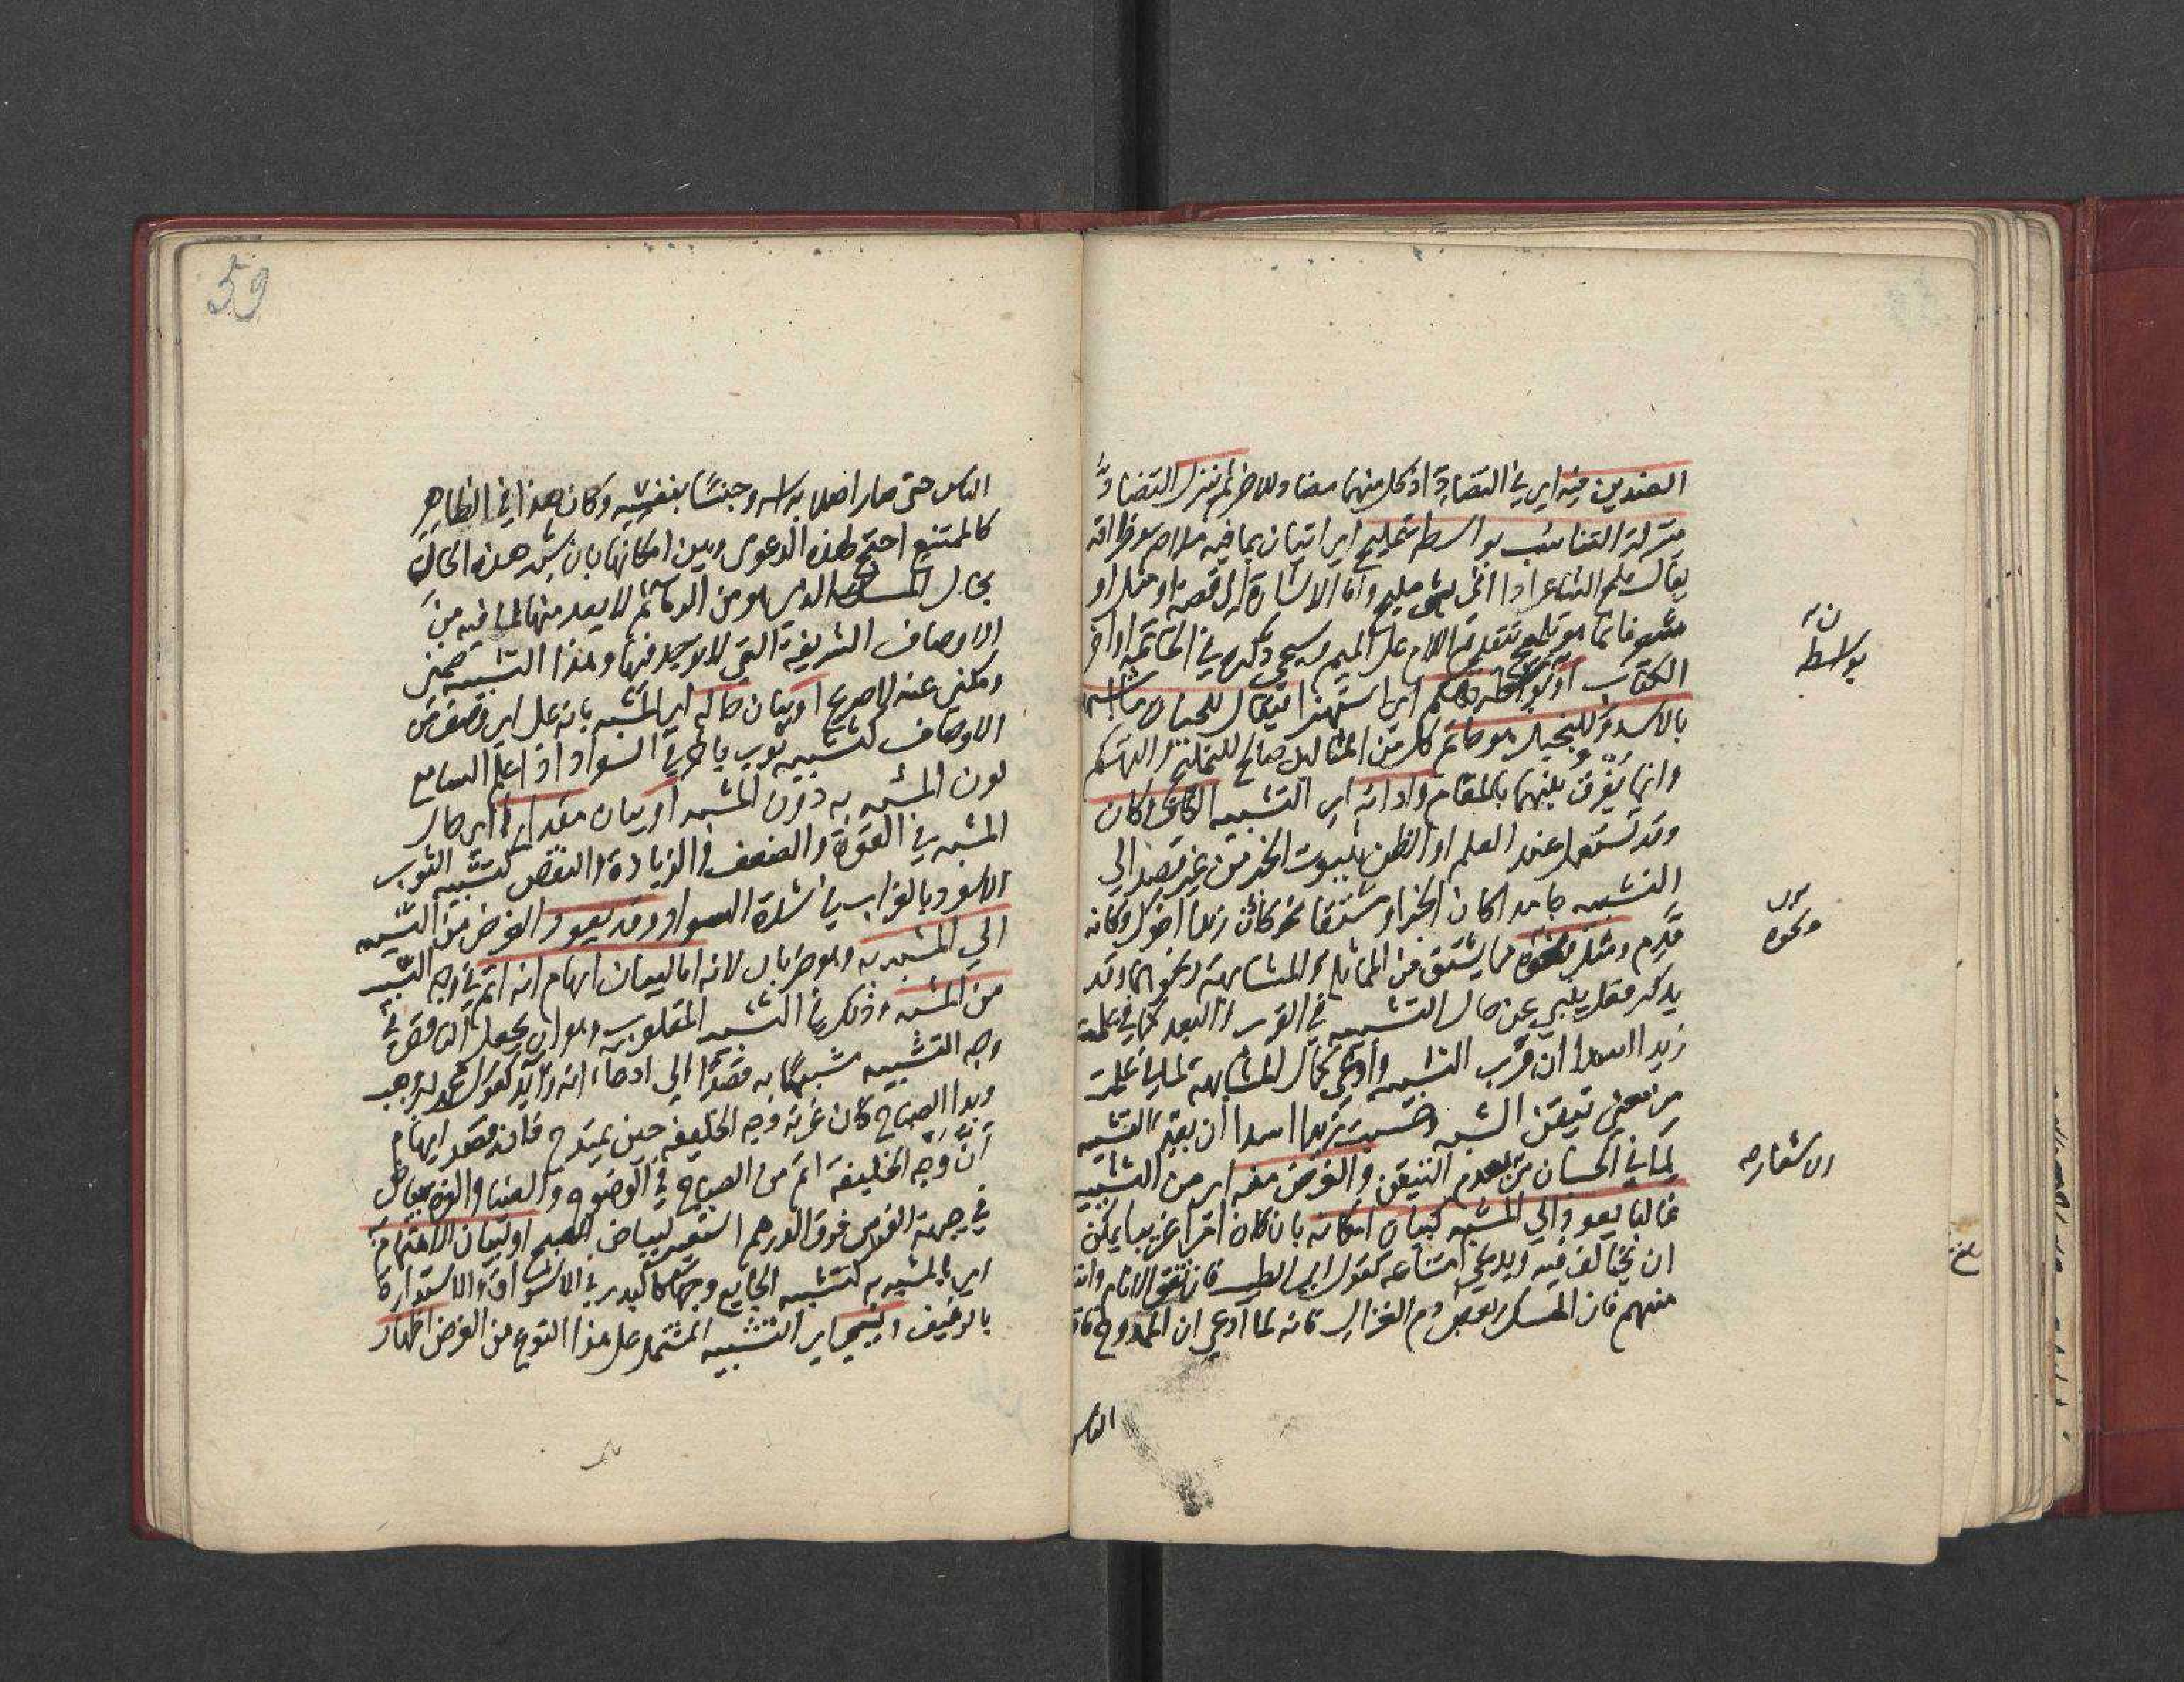 الضدين فيه اي في التضاد اذ كل منهما مضاد للاخر ثم ينزل التضاد
منزلة التناسب بواسطة تمليح اي اتيان بما فيه ملاحة وظرافة
يقال ملح الشاعر اذا اتى بشي مليح واما الاشارة الى قصة او مثل او
شعر فانما هو تلميح بتقديم اللام على الميم وسيجي ذكره في الخاتمة اواخر
الكتاب او تهكم اي استهزا فيقال للجبان ما اشبهه
بالاسد وللبخيل هو حاتم كل من المثالين صالح للتمليح والتهكم
وانما يفرق بينهما بالمقام واداته اي التشبيه الكاف وكان
وقد تستعمل عند العلم او الظن بثبوت الخبر من غير قصد الي
التشبيه جامدا كان الخبر او مشتقا نحو كان زيدا اخوك وكانه
قدم ومثل ونحوه مما يشتق من المماثلة والمشابهة ونحوهما وقد
يذكر فعل ينبي عن حال التشبيه في القرب والبعد كما في علمت
زيدا اسدا ان قرب التشبيه وادعي كمال المشابهة لما في علمت
من معنى تيقن الشبه وحسبت زيدا اسدا ان بعد التشبيه
لما في الحسبان من عدم التيقن والغرض منه اي من التشبيه
غالبا يعود الي المشبه كبيان امكانه بان كان امرا غريبا يمكن
ان يخالف فيه ويدعي امتناعه كقول ابي الطيب فان تفق الانام وانت
منهم فان المسك بعض دم الغزال فانه لما ادعي ان الممدوح فاق
الناس
ن
بواسطة
ونحوه
الناس حتى صار اصلا براسه وجنسا بنفسه وكان هذا في الظاهر
كالممتنع احتج لهذه الدعوى وبين امكانها بان شبه هذه الحال
بحال المسك الذي هو من الدماء ثم لا يعد منها لما فيه من
الاوصاف الشريفة التي لا توجد فيها وهذا التشبيه ضمني
ومكنى عنه لا صريح او بيان حاله اي المشبه بانه على اي وصف من
الاوصاف كتشبيه ثوب باخر في السواد اذا علم السامع
لون المشبه به دون المشبه او بيان مقدارها اي حال
المشبه في القوة والضعف والزيادة والنقص كتشبيه الثوب
الاسود بالغراب في شدة السواد وقد يعود الغرض من التشبيه
الي المشبه به وهو ضربان لانه اما لبيان ايهام انه اتم في وجه التشبيه
من المشبه وذلك في التشبيه المقلوب وهو ان يجعل الناقص في
وجه التشبيه مشبها به قصدا الى ادعاء انه زايد كقول محمد بن وهيب
وبدا الصباح كان غرته وجه الخليفة حين يمتدح فانه قصد ايهام
ان وجه الخليفة اتم من الصباح في الوضوح والضياء والغرة بياض
في جبهة الفرس فوق الدرهم استعير لبياض الصبح او لبيان الاهتمام
اي بالمشبه به كتشبيه الجايع وجها كالبدر في الاشراق والاستدارة
بالرغيف ويسمى اي التشبيه المشتمل على هذا النوع من الغرض اظهار
59